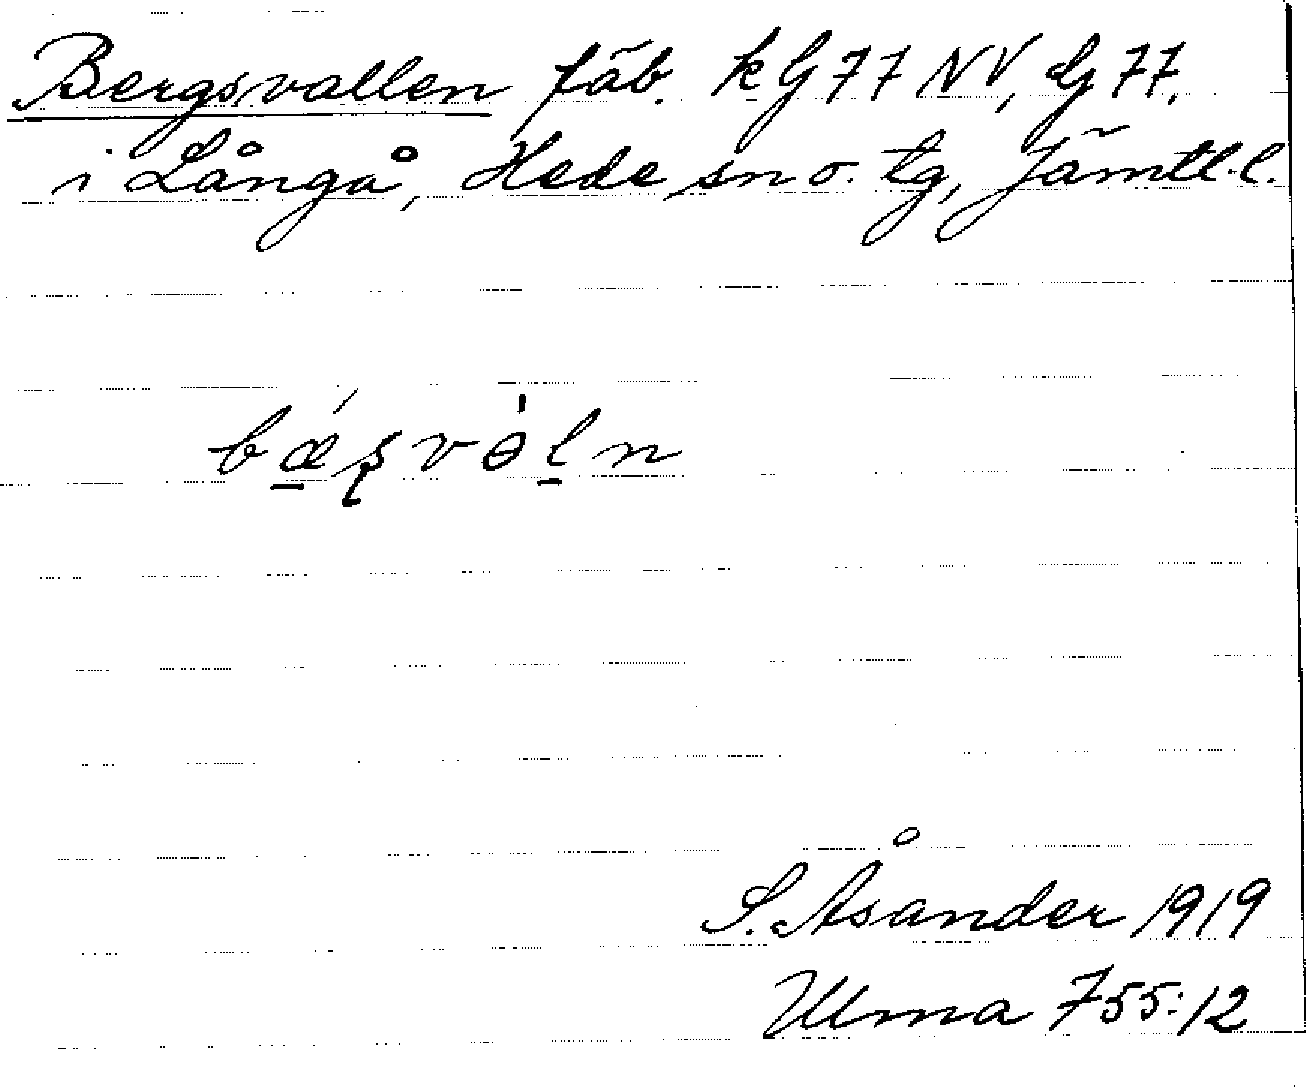 Bergsvallen fäb. kG 77 NV, dG 77.
i Långå, Hede sn o. tg, Jämtl. l.
bǽ̱ʂvɵ̀ḻn
S. Åsander 1919
Ulma 755:12